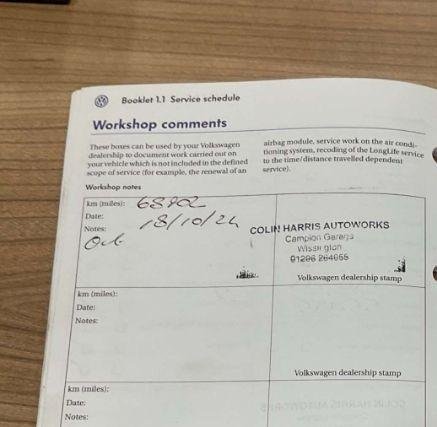 Booklet 1.1 Service schedule
Workshop comments
These boxes can be used by your Volkswagen
dealership to document work carried out on
your vehicle which is not included in the defined
scope of service (for example, the renewal of an
airbag module, service work on the air condi-
tioning system, recoding of the LongLife service
to the time/distance travelled dependent
service).
Workshop notes
km (miles): 68902
Date: 18/10/24
Notes:
COLIN HARRIS AUTOWORKS
Campion Garage
01206 264066
Volkswagen dealership stamp
km (miles):
Date:
Notes:
Volkswagen dealership stamp
km (miles):
Date:
Notes: